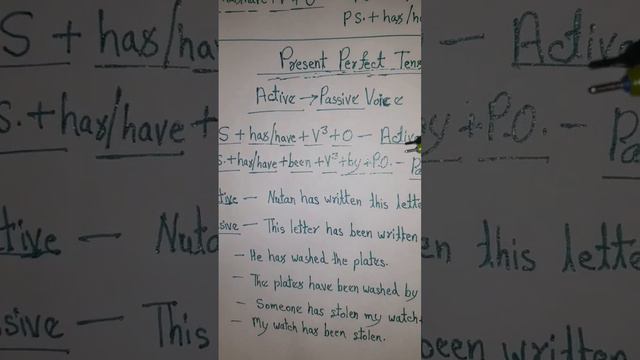 PS.+ has/h
Present Perfect Ten
Active → Passive Voice
S + has/have + V³ + O — Activ
s. + has/have + been + V³ + by + P.O. — Pa
tive — Nutan has written this lette
ssive — This letter has been written
— He has washed the plates.
— The plates have been washed by
— Someone has stolen my watch.
— My watch has been stolen.